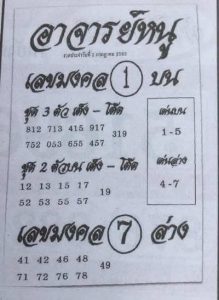 อาจารย์หนู
งวดประจำวันที่ 1 กรกฎาคม 2565
เลขมงคล 1 บน
ชุด 3 ตัว เต็ง – โต๊ด
812 713 415 917
319
752 053 655 457
เด่นบน
1-5
ชุด 2 ตัวบน เต็ง – โต๊ด
12 13 15 17
19
52 53 55 57
เด่นล่าง
4-7
เลขมงคล 7 ล่าง
41 42 46 48
49
71 72 76 78